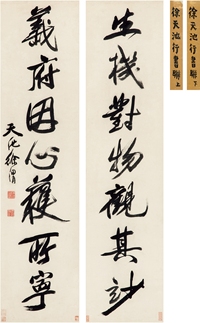 徐天池行書聯 下
徐天池行書聯 上
生機對物觀其妙
義府因心獲所寧
天池徐渭